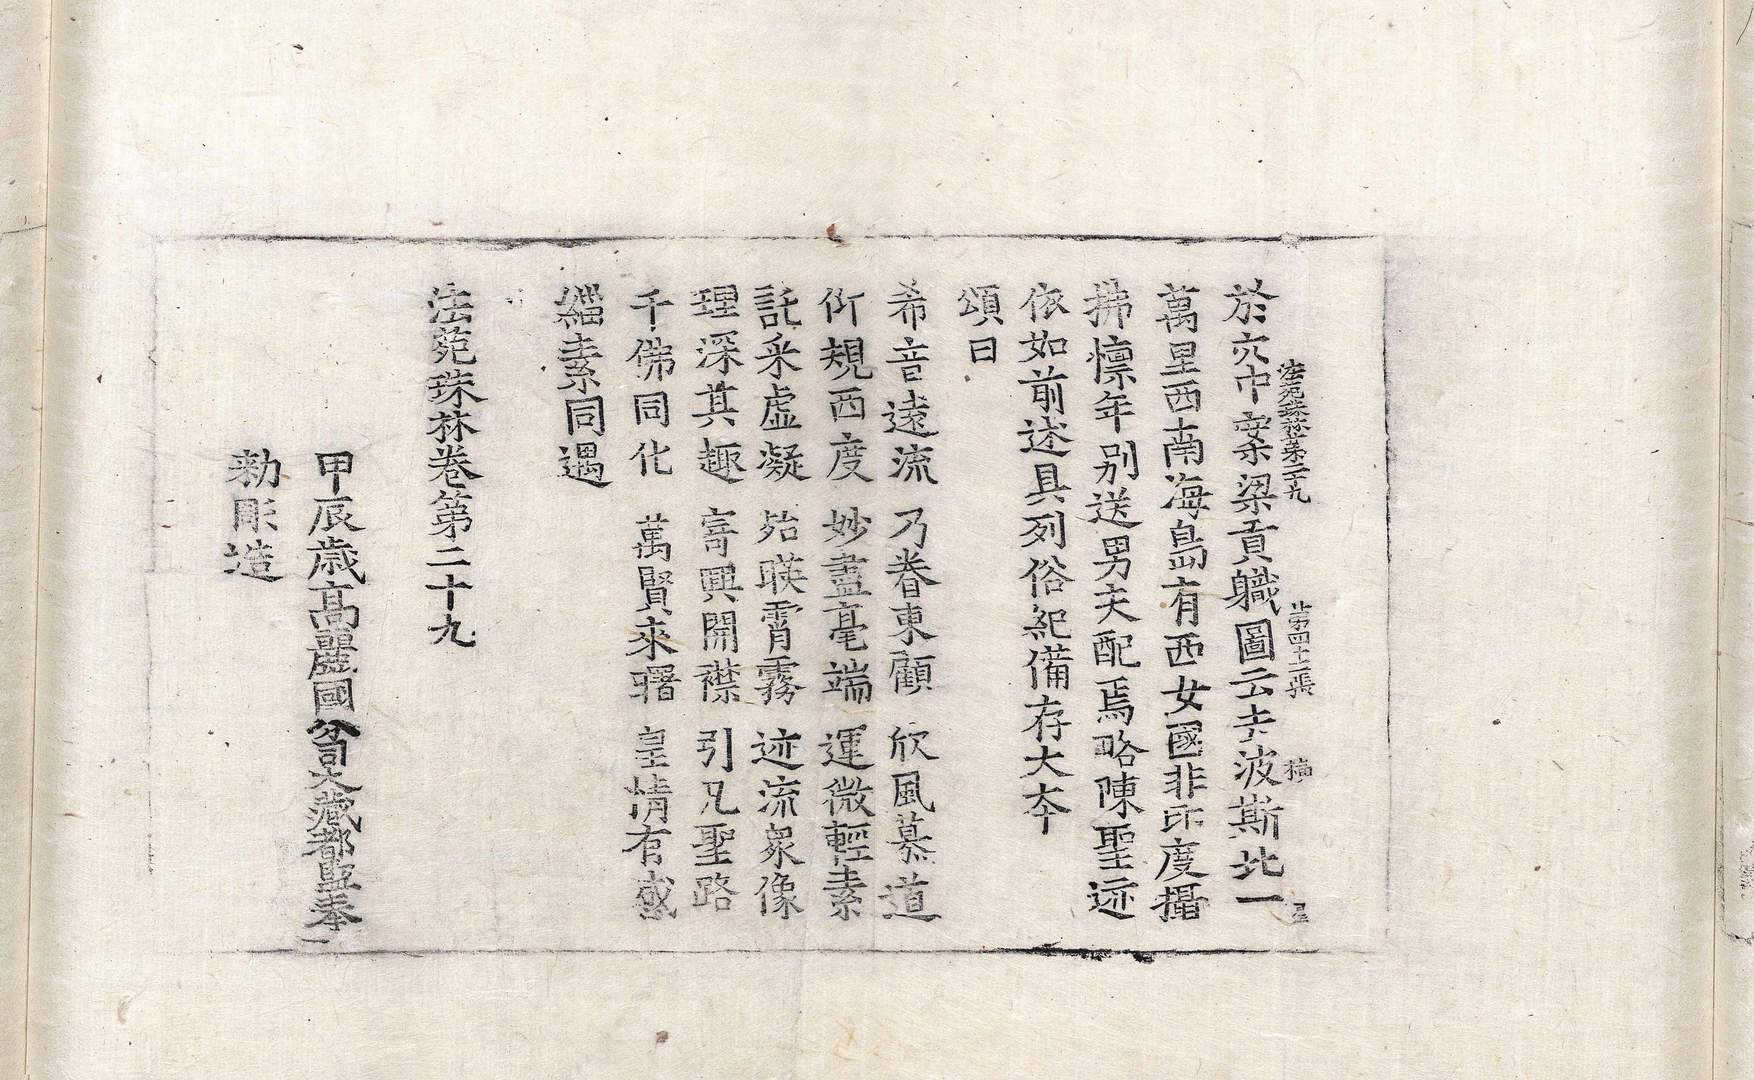 法苑珠林第二十九 第四十二張 橫
於穴中案梁貢軄圖云去波斯北一
萬里西南海島有西女國非印度攝
拂懍年别送男夫配焉略陳聖迹
依如前述具列俗紀備存大夲
頌曰
希音遠流 乃眷東顧 欣風慕道
仰規西度 妙盡毫端 運微輕素
託釆虛凝 殆暎霄霧 迹流衆像
理深其趣 寄興開襟 引凡聖路
千佛同化 萬賢來曙 皇情有感
緇素同遇
法苑珠林卷第二十九
甲辰歳高麗國分司大藏都監奉
勑彫造